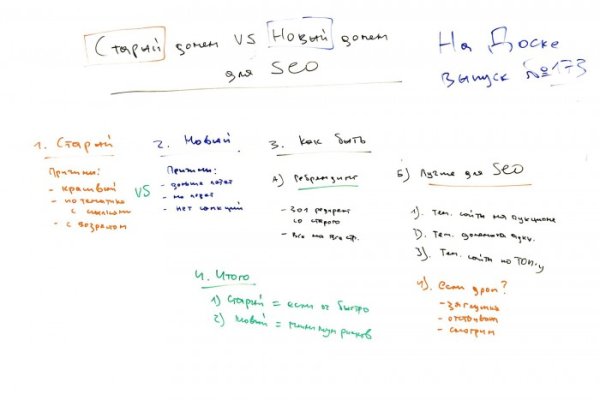 Старый домен VS Новый домен
для SEO
На Доске
выпуск №173
1. Старый
Причины:
- красивый
- по тематике
с ссылками
- с возрастом
VS
2. Новый
Причины:
- дольше
- нет санкций
3. Как быть
А) Ребрендинг
- 301 редирект
со старого
- Все на все стр.
Б) Лучше для SEO
1). Тем. сайты на аукционе
2). Тем. домены
3). Тем. сайты по ТОП-у
4). если дроп?
- загрузка
- отстоять
- смотрим
4. Итого
1) Старый = если оч быстро
2) Новый = минимум рисков